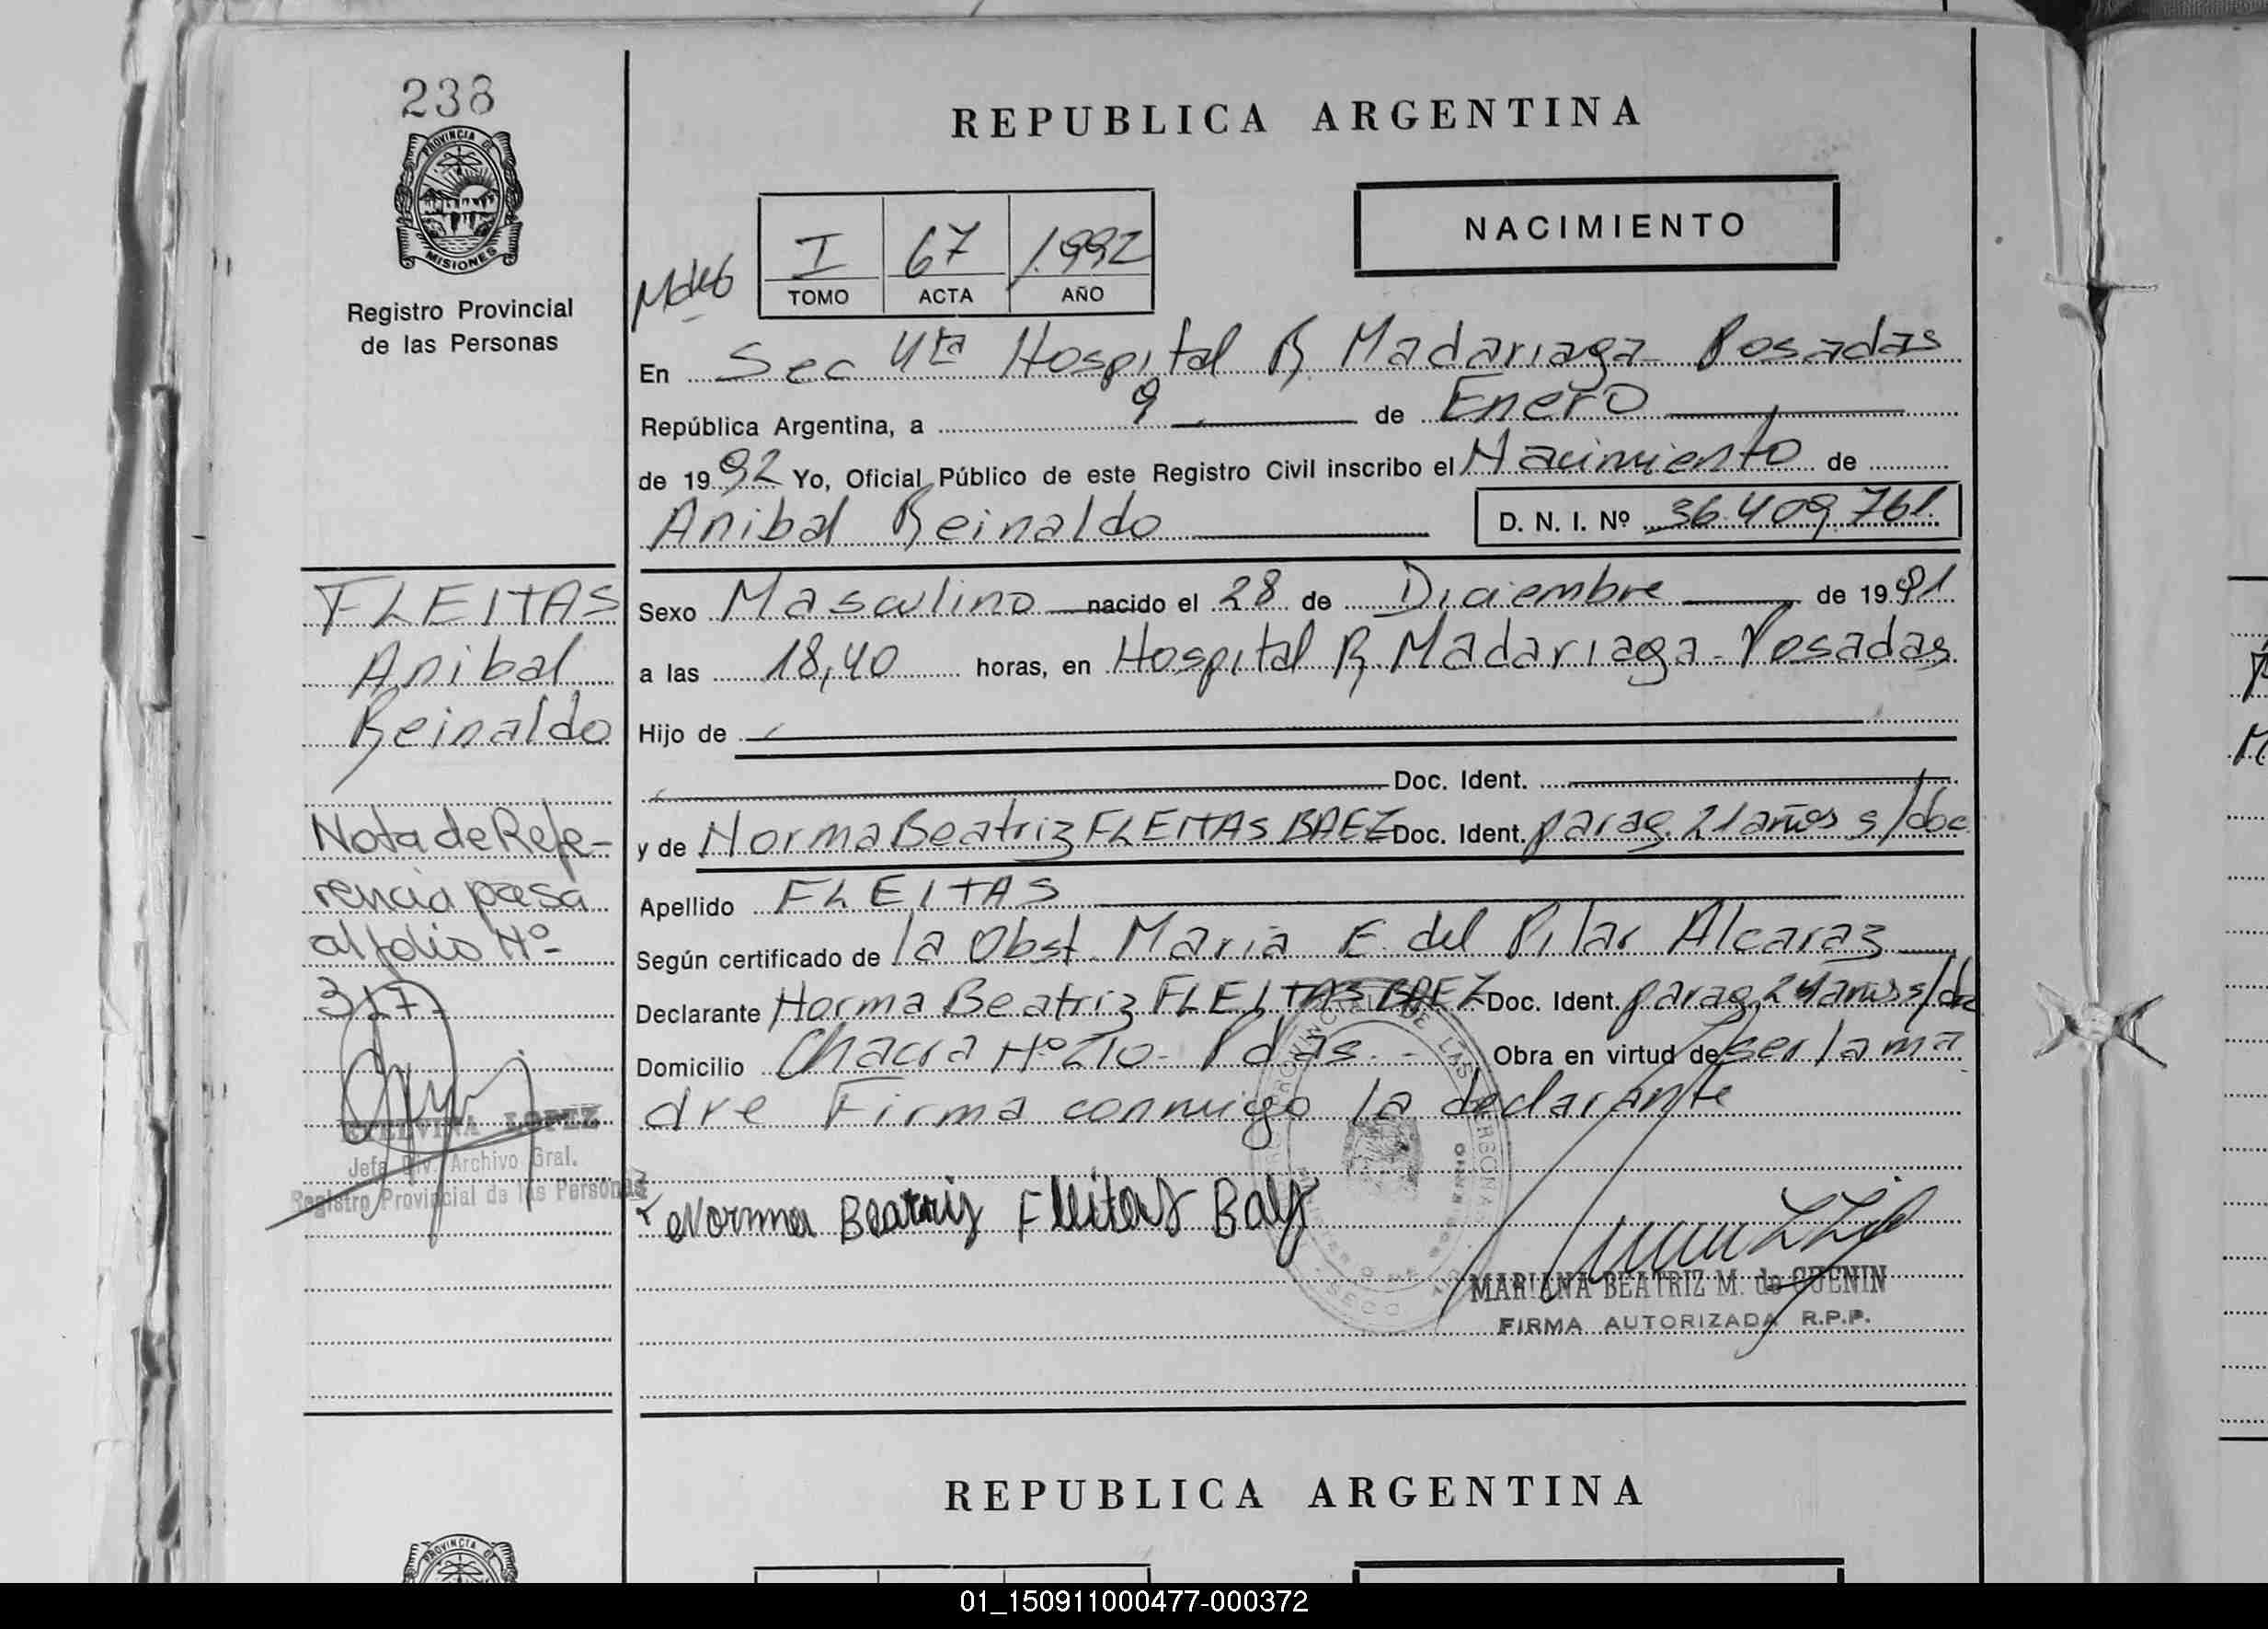 238
PROVINCIA DE
MISIONES
Registro Provincial
de las Personas
REPUBLICA ARGENTINA
NACIMIENTO
I 67 1992
TOMO ACTA AÑO
En Sec 4ta Hospital R Madariaga Posadas
República Argentina, a 9 de Enero
de 1992 Yo, Oficial Público de este Registro Civil inscribo el Nacimiento de
Anibal Reinaldo D. N. I. Nº 36.409.761.
FLEITAS
Anibal
Reinaldo
Nota de Refe-
rencia pasa
al folio Nº
317
LOPEZ
Jefa Div. Archivo Gral.
Registro Provincial de las Personas
Sexo Masculino nacido el 28 de Diciembre de 1991
a las 18,40 horas, en Hospital R. Madariaga - Posadas
Hijo de
Doc. Ident.
y de Norma Beatriz FLEITAS BAEZ Doc. Ident. parag. 21 años s/doc
Apellido FLEITAS
Según certificado de la Obst. Maria E. del Pilar Alcaraz
Declarante Norma Beatriz FLEITAS BAEZ Doc. Ident. parag. 21 años s/doc
Domicilio Chacra Nº 210 - Pdas. - Obra en virtud de ser la ma
dre Firma conmigo la declarante
Norma Beatriz Fleitas Baez
MARIANA BEATRIZ M. de GUENIN
FIRMA AUTORIZADA R.P.P.
REPUBLICA ARGENTINA
PROVINCIA DE
01_150911000477-000372